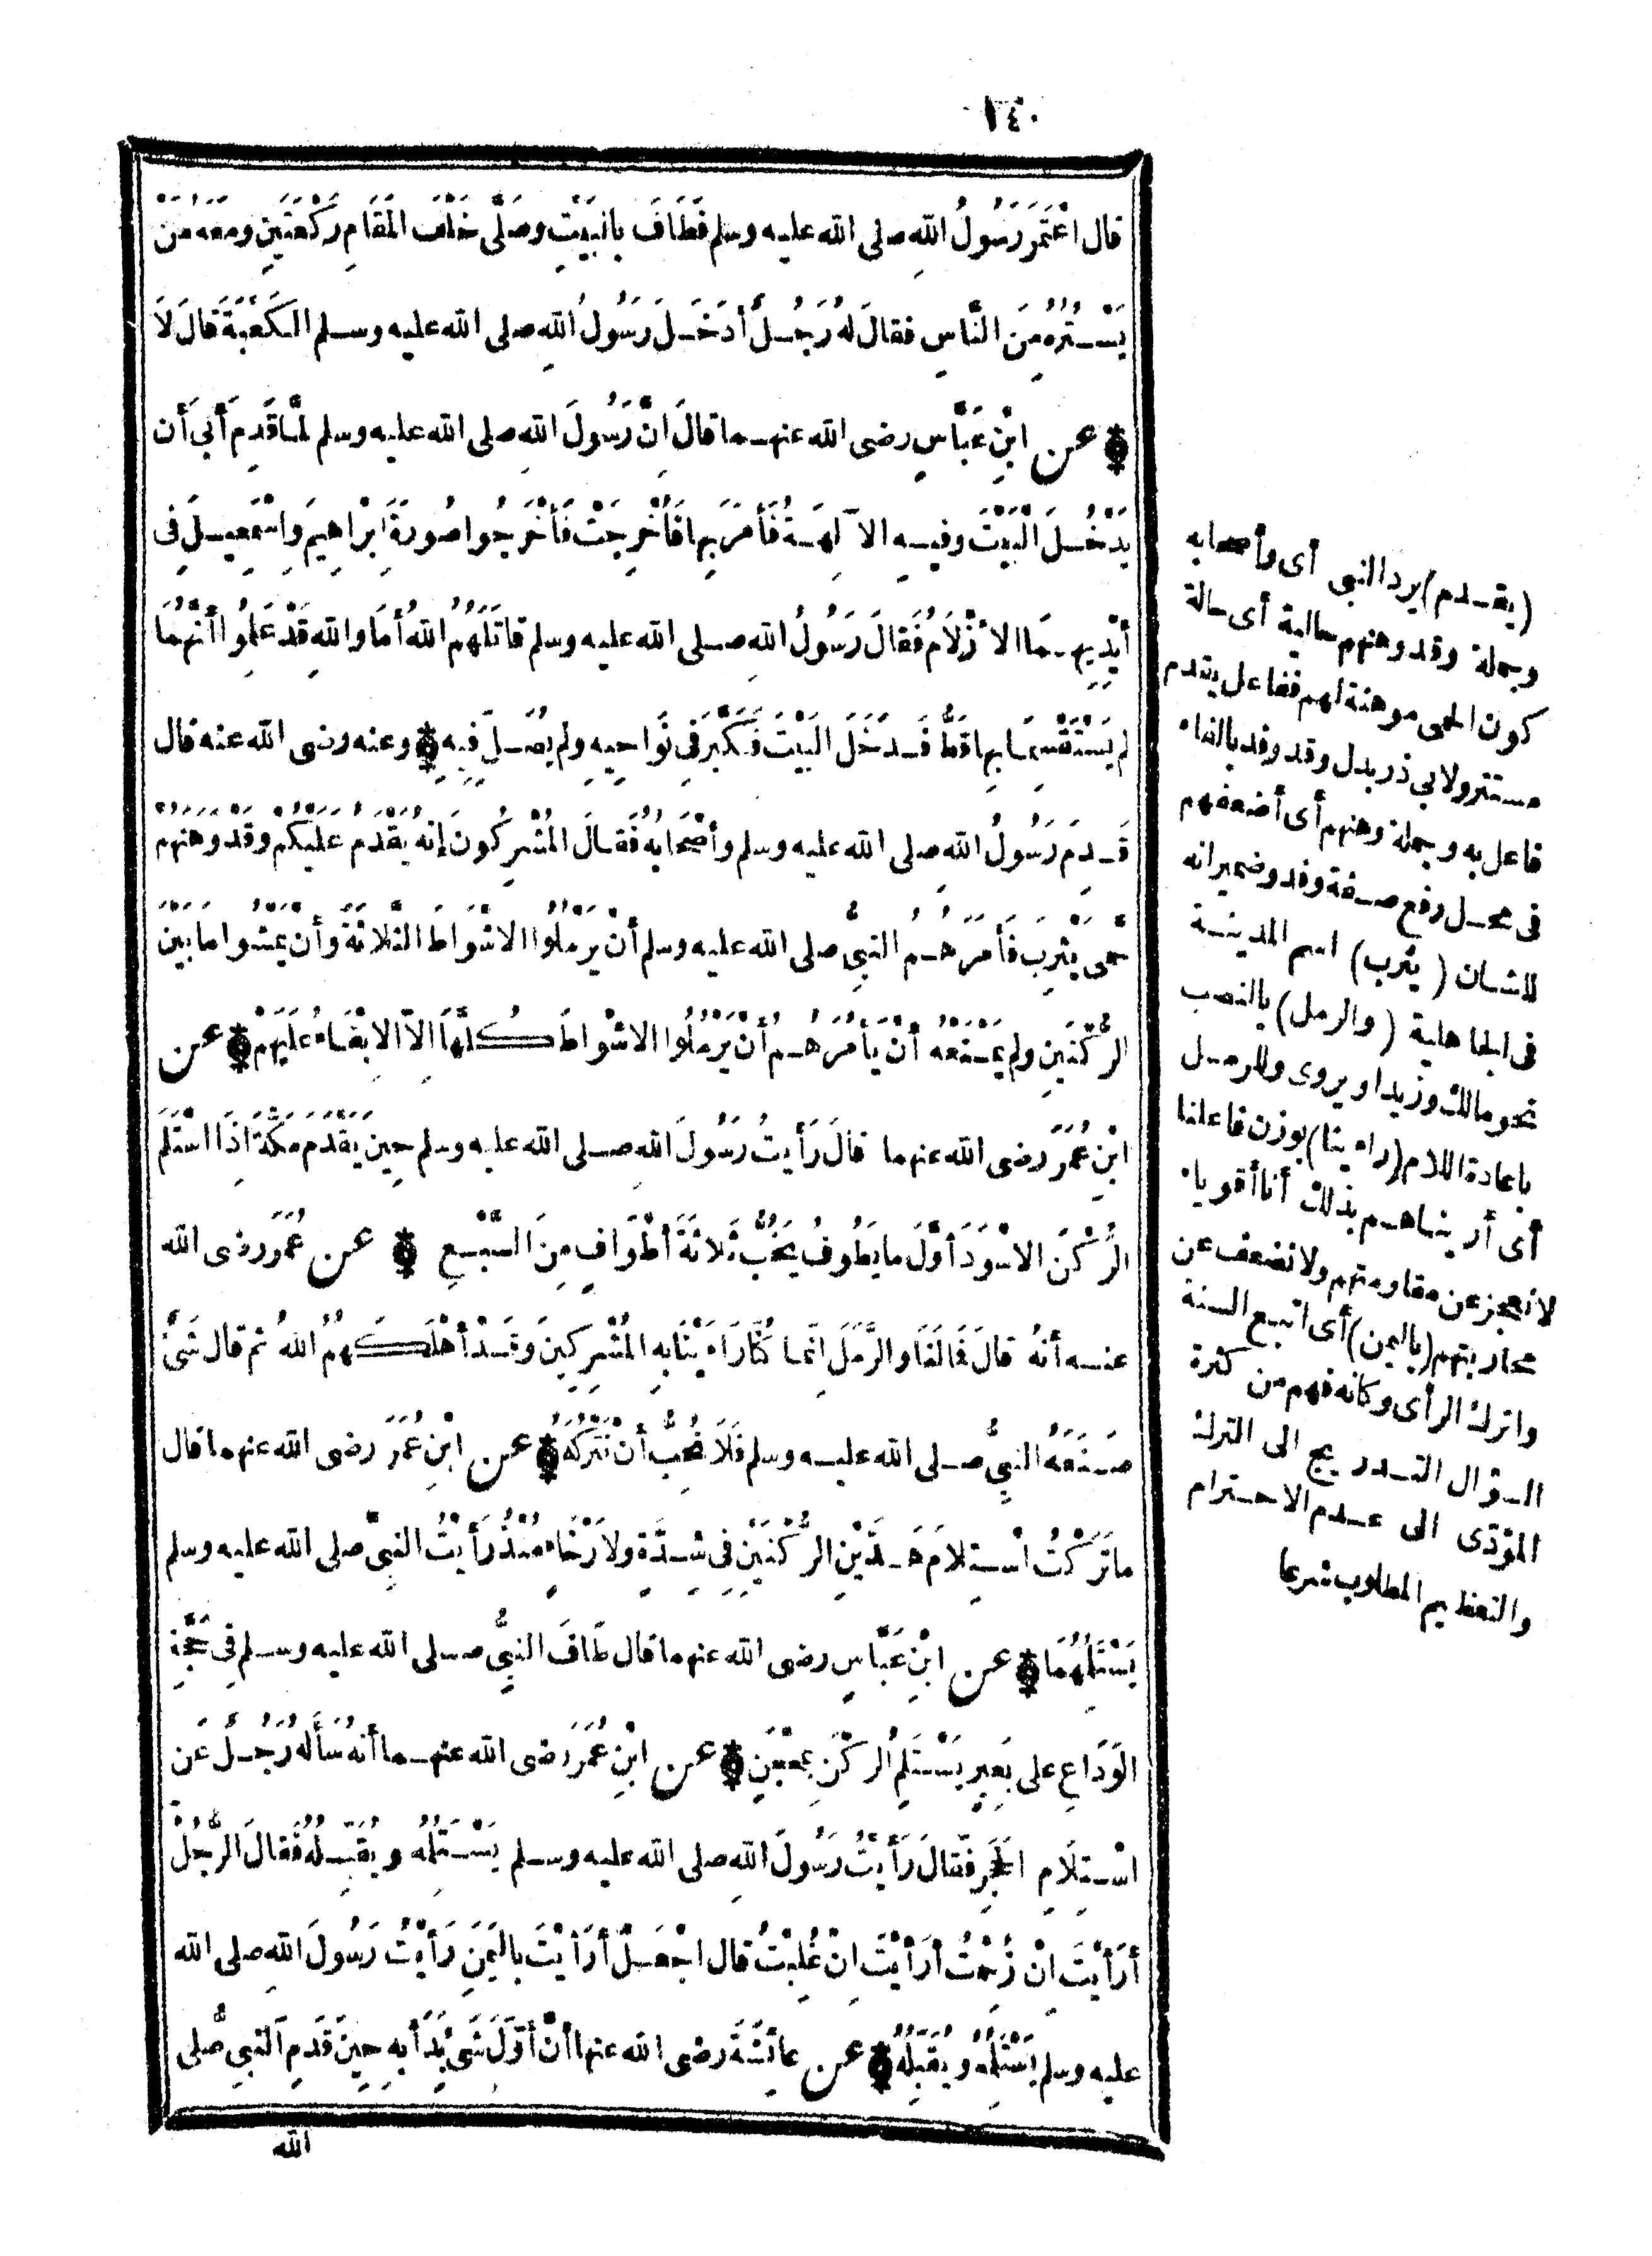 ١٤٠
قال اعْتَمَرَ رَسُولُ اللهِ صلى الله عليه وسلم فَطَافَ بِالبَيْتِ وصَلَّى خَلْفَ المَقَامِ رَكْعَتَيْنِ ومَعَهُ مَنْ
يَسْتُرُهُ مِنَ النَّاسِ فقالَ لَهُ رَجُلٌ أَدَخَلَ رَسُولُ اللهِ صلى الله عليه وسلم الكَعْبَةَ قالَ لَا
عن ابْنِ عَبَّاسٍ رضى الله عنهما قالَ اِنَّ رَسُولَ اللهِ صلى الله عليه وسلم لمَّا قَدِمَ أَبَى أَن
يَدْخُلَ الْبَيْتَ وفيه الآلِهَةُ فَأَمَرَ بِها فَأُخْرِجَتْ فَأَخْرَجُوا صُورَةَ اِبْرَاهِيمَ وَاِسْمَعِيلَ فِى
أَيْدِيهِمَا الأَزْلَامُ فَقالَ رَسُولُ اللهِ صلى الله عليه وسلم قاتَلَهُمُ اللهُ أَمَا واللهِ قَدْ عَلِمُوا أَنَّهُمَا
لم يَسْتَقْسِمَا بِها قَطُّ فَدَخَلَ البَيْتَ فَكَبَّرَ فِى نَوَاحِيهِ ولم يُصَلِّ فِيهِ وعنه رضى الله عنه قال
قَدِمَ رَسُولُ اللهِ صلى الله عليه وسلم وأَصْحَابُهُ فَقالَ المُشْرِكُونَ إِنهُ يَقْدَمُ عَلَيْكُمْ وقَدْ وَهَنَهُمْ
حُمَّى يَثْرِبَ فَأَمَرَهُمُ النبِيُّ صلى الله عليه وسلم أَنْ يَرْمُلُوا الاشْوَاطَ الثَّلاثَةَ وأَنْ يَمْشُوا مَا بَيْنَ
الرُّكْنَيْنِ ولم يَمْنَعْهُ أَنْ يَأْمُرَهُمْ أَنْ يَرْمُلُوا الاشْوَاطَ كُلَّهَا اِلَّا الاِبْقَاءُ عَلَيْهِمْ عن
ابْنِ عُمَرَ رضى الله عنهما قالَ رَأَيتُ رَسُولَ اللهِ صلى الله عليه وسلم حِينَ يَقْدَمُ مَكَّةَ اِذَا اسْتَلَمَ
الرُّكْنَ الاسْوَدَ أَوَّلَ ما يَطُوفُ يَخُبُّ ثَلَاثَةَ أَطْوَافٍ مِنَ السَّبْعِ عن عُمَرَ رضى الله
عنه أَنهُ قالَ فَمَا لَنَا والرَّمَلَ اِنَّما كُنَّا رَاءَيْنَا بِهِ المُشْرِكِينَ وقَدْ أَهْلَكَهُمُ اللهُ ثم قال شَىْءٌ
صَنَعَهُ النبِيُّ صلى الله عليه وسلم فَلَا نُحِبُّ أَنْ نَتْرُكَهُ عن ابْنِ عُمَرَ رضى الله عنهما قال
ما تَرَكْتُ اسْتِلَامَ هَذَيْنِ الرُّكْنَيْنِ فِى شِدَّةٍ ولا رَخَاءٍ مُنْذُ رَأَيْتُ النبِىَّ صلى الله عليه وسلم
يَسْتَلِمُهُمَا عن ابْنِ عَبَّاسٍ رضى الله عنهما قال طَافَ النبِيُّ صلى الله عليه وسلم فِى حَجَّةِ
الوَدَاعِ على بَعِيرٍ يَسْتَلِمُ الرُّكْنَ بِمِحْجَنٍ عن ابْنِ عُمَرَ رضى الله عنهما أَنهُ سَأَلَهُ رَجُلٌ عَن
اسْتِلَامِ الحَجَرِ فَقَالَ رَأَيْتُ رَسُولَ اللهِ صلى الله عليه وسلم يَسْتَلِمُهُ ويُقَبِّلُهُ فَقالَ الرَّجُلُ
أَرَأَيْتَ اِنْ زُحِمْتُ أَرَأَيْتَ اِنْ غُلِبْتُ قال اجْعَلْ أَرَأَيْتَ بِاليَمَنِ رَأَيْتُ رَسُولَ اللهِ صلى الله
عليه وسلم يَسْتَلِمُهُ ويُقَبِّلُهُ عن عَائِشَةَ رضى الله عنها أَنَّ أَوَّلَ شَىْءٍ بَدَأَ بِهِ حِينَ قَدِمَ النبِيُّ صلى
الله
(يقدم) يرد النبى أى وأصحابه
وجملة وقد وهنهم حالية أى حالة
كون الحمى موهنة لهم ففاعل يقدم
مستتر ولابى ذر بدل وقد وفد بالفاء
فاعل به وجملة وهنهم أى أضعفهم
فى محل رفع صفة وفد وضمير انه
للشان (يثرب) اسم المدينة
فى الجاهلية (والرمل) بالنصب
نحو مالك وزيدا ويروى وللرمل
باعادة اللام (راءينا) بوزن فاعلنا
أى أريناهم بذلك أنا أقوياء
لا نعجز عن مقاومتهم ولا نضعف عن
محاربتهم (باليمن) أى اتبع السنة
واترك الرأى وكانه فهم من كثرة
السؤال التدريج الى الترك
المؤدّى الى عدم الاحترام
والتعظيم المطلوب شرعا